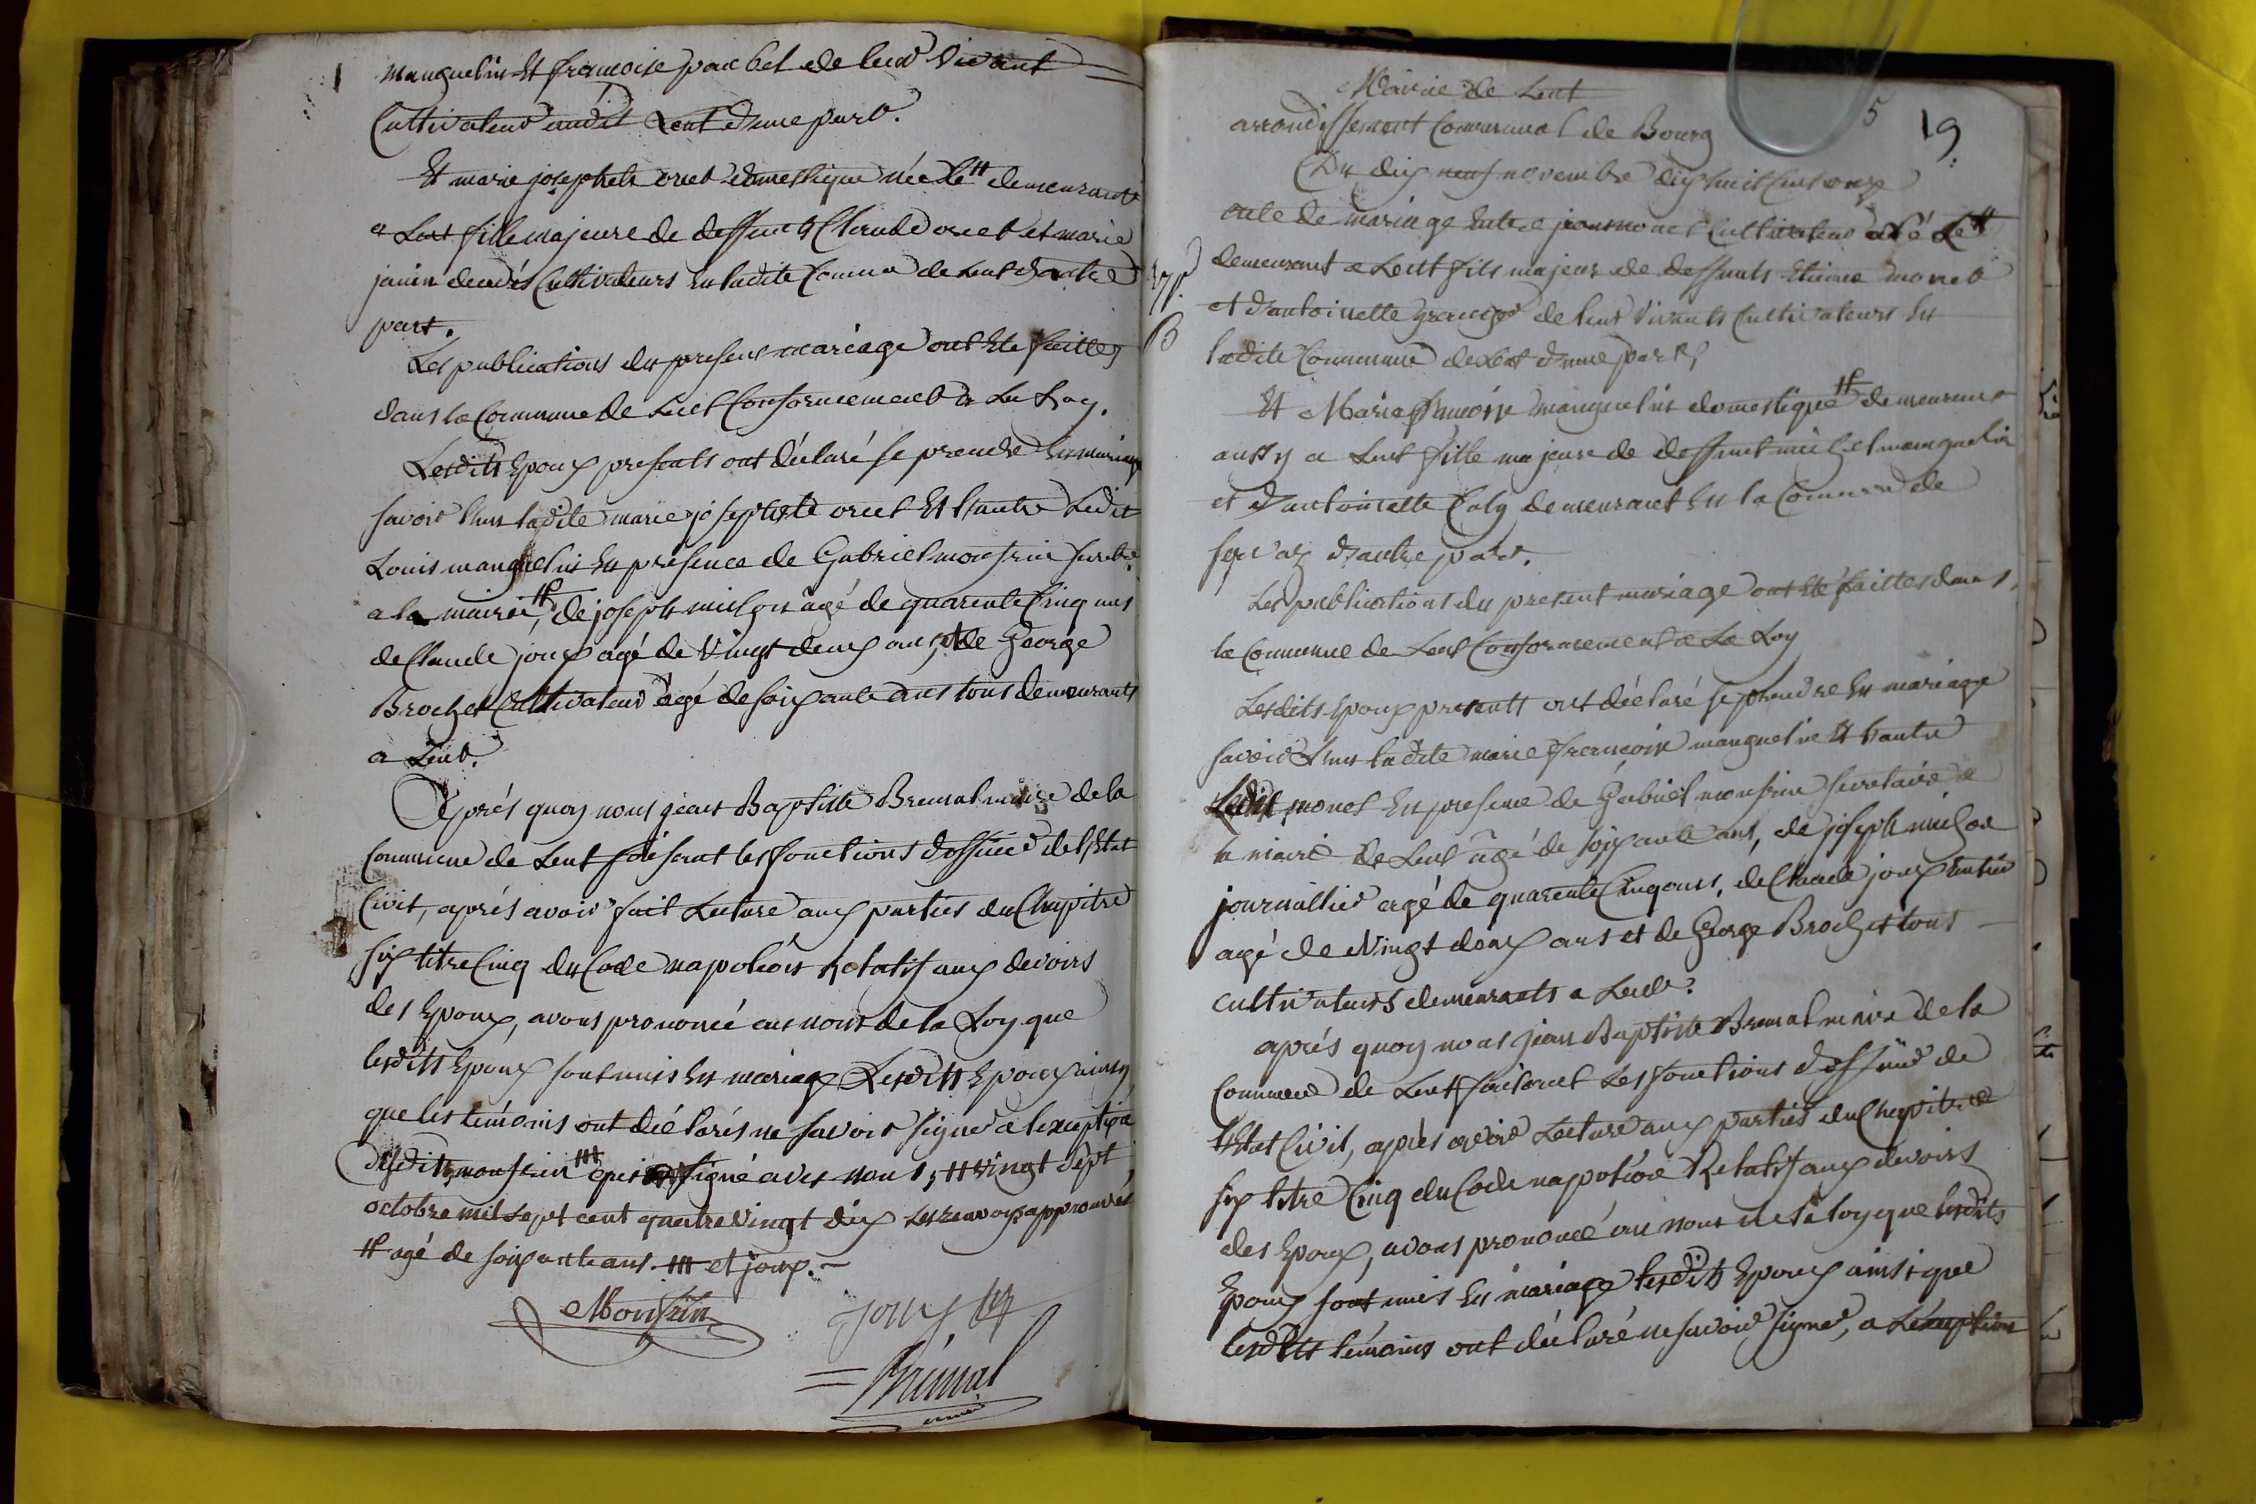 manguelin Et francoise pacbet de leur vivant
Cultivateur audit Lent d'une part.
Et marie josephete oret domestique née le # demeurante
a Lent fille majeure de deffunt Claude oret et marie
janin decedés Cultivateurs En ladite Commune de Lent d'autre
part.
Les publications du present mariage ont Eté faittes
dans la Commune de Lent Conformement a La Loy.
Lesdits Epoux presents ont déclaré se prendre En mariage
savoir l'un ladite marie josephete oret Et l'autre Ledit
Louis manguelin En présence de Gabriel monfrin secret.
a la mairie #, de joseph michon âgé de quarente Cinq ans
de Claude joux agé de Vingt deux ans, et de George
Brochet Cultivateur agé de soixante ans tous demeurants
a Lent.
Après quoy nous jean Baptiste Bremal maire de la
Commune de Lent faisant les fonctions d'officier de l'Etat
Civil, aprés avoir fait Lecture aux parties du Chapitre
six titre Cinq du Code napoléon Relatif aux devoirs
des Epoux, avons prononcé au nom de la Loy que
lesdits Epoux sont unis En mariage Lesdits Epoux ainsy
que les témoins ont déclarés ne savoir signer a l'exception
desdits monfrin ### qui ont signé avec nous, # vingt sept
octobre mil sept cent quatre vingt dix Les renvois approuvés
# agé de soixante ans. ### et joux. —
Monfrin joux
= Brémal
maire
Mairie de Lent
5
19.
arrondissement Communal de Bourg
Du dix neuf novembre dix huit Cent onze
acte de mariage Entre jean monet Cultivateur né le #
demeurant a Lent fils majeur de deffunts Etienne monet
et d'antoinette grange de leur Vivants Cultivateurs En
ladite Commune de Lent d'une part,
Et Marie francoise manguelin domestique # demeurant
aussy a Lent fille majeure de deffunt michel manguelin
et d'antoinette Caly demeurant En la Commune de
servaz d'autre part.
Les publications du present mariage ont Eté faittes dans
la Commune de Lent Conformement a La Loy
Lesdits Epoux presents ont déclaré se prendre En mariage
savoir L'un ladite marie francoise manguelin Et l'autre
Ledit monet En presence de Gabriel monfrin secretaire a
la mairie de Lent âgé de soixante ans, de joseph michon
journallier agé de quarente Cinq ans, de Claude joux
agé de Vingt deux ans et de George Brochet tous —
cultivateurs demeurants a Lent.
aprés quoy nous jean Baptiste Bremal maire de la
Commune de Lent faisant Les fonctions d'officier de
l'Etat Civil, aprés avoir Lecture aux parties du Chapitre
six titre Cinq du Code napoléon Relatif aux devoirs
des Epoux, avons prononcé au nom de la loy que lesdits
Epoux sont unis En mariage lesdits Epoux ainsi que
lesdits témoins ont déclaré ne savoir signer, a L'exception